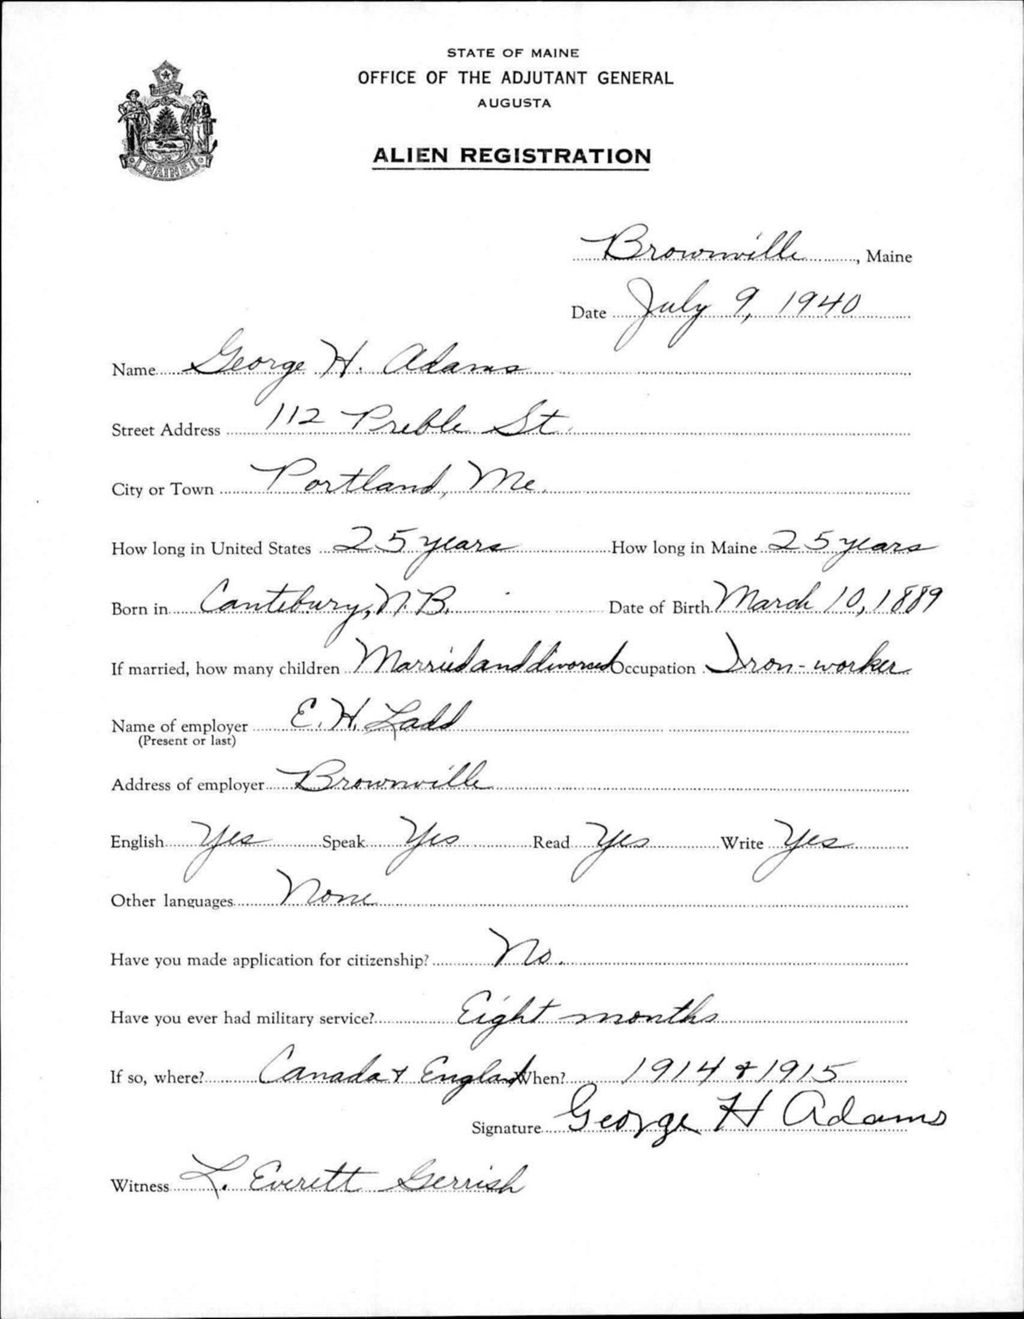 STATE OF MAINE
OFFICE OF THE ADJUTANT GENERAL
AUGUSTA
ALIEN REGISTRATION
MAINE
Brownville, Maine
Date July 9, 1940
Name George H. Adams
Street Address 112 Preble St.
City or Town Portland, Me.
How long in United States 25 years How long in Maine 25 years
Born in Cantebury, N.B. Date of Birth March 10, 1889
If married, how many children Married and divorced Occupation Iron-worker
Name of employer E. H. Ladd
(Present or last)
Address of employer Brownville
English Yes Speak Yes Read Yes Write Yes
Other languages None
Have you made application for citizenship? No.
Have you ever had military service? Eight months
If so, where? Canada & England When? 1914 & 1915
Signature George H Adams
Witness L. Everett Gerrish